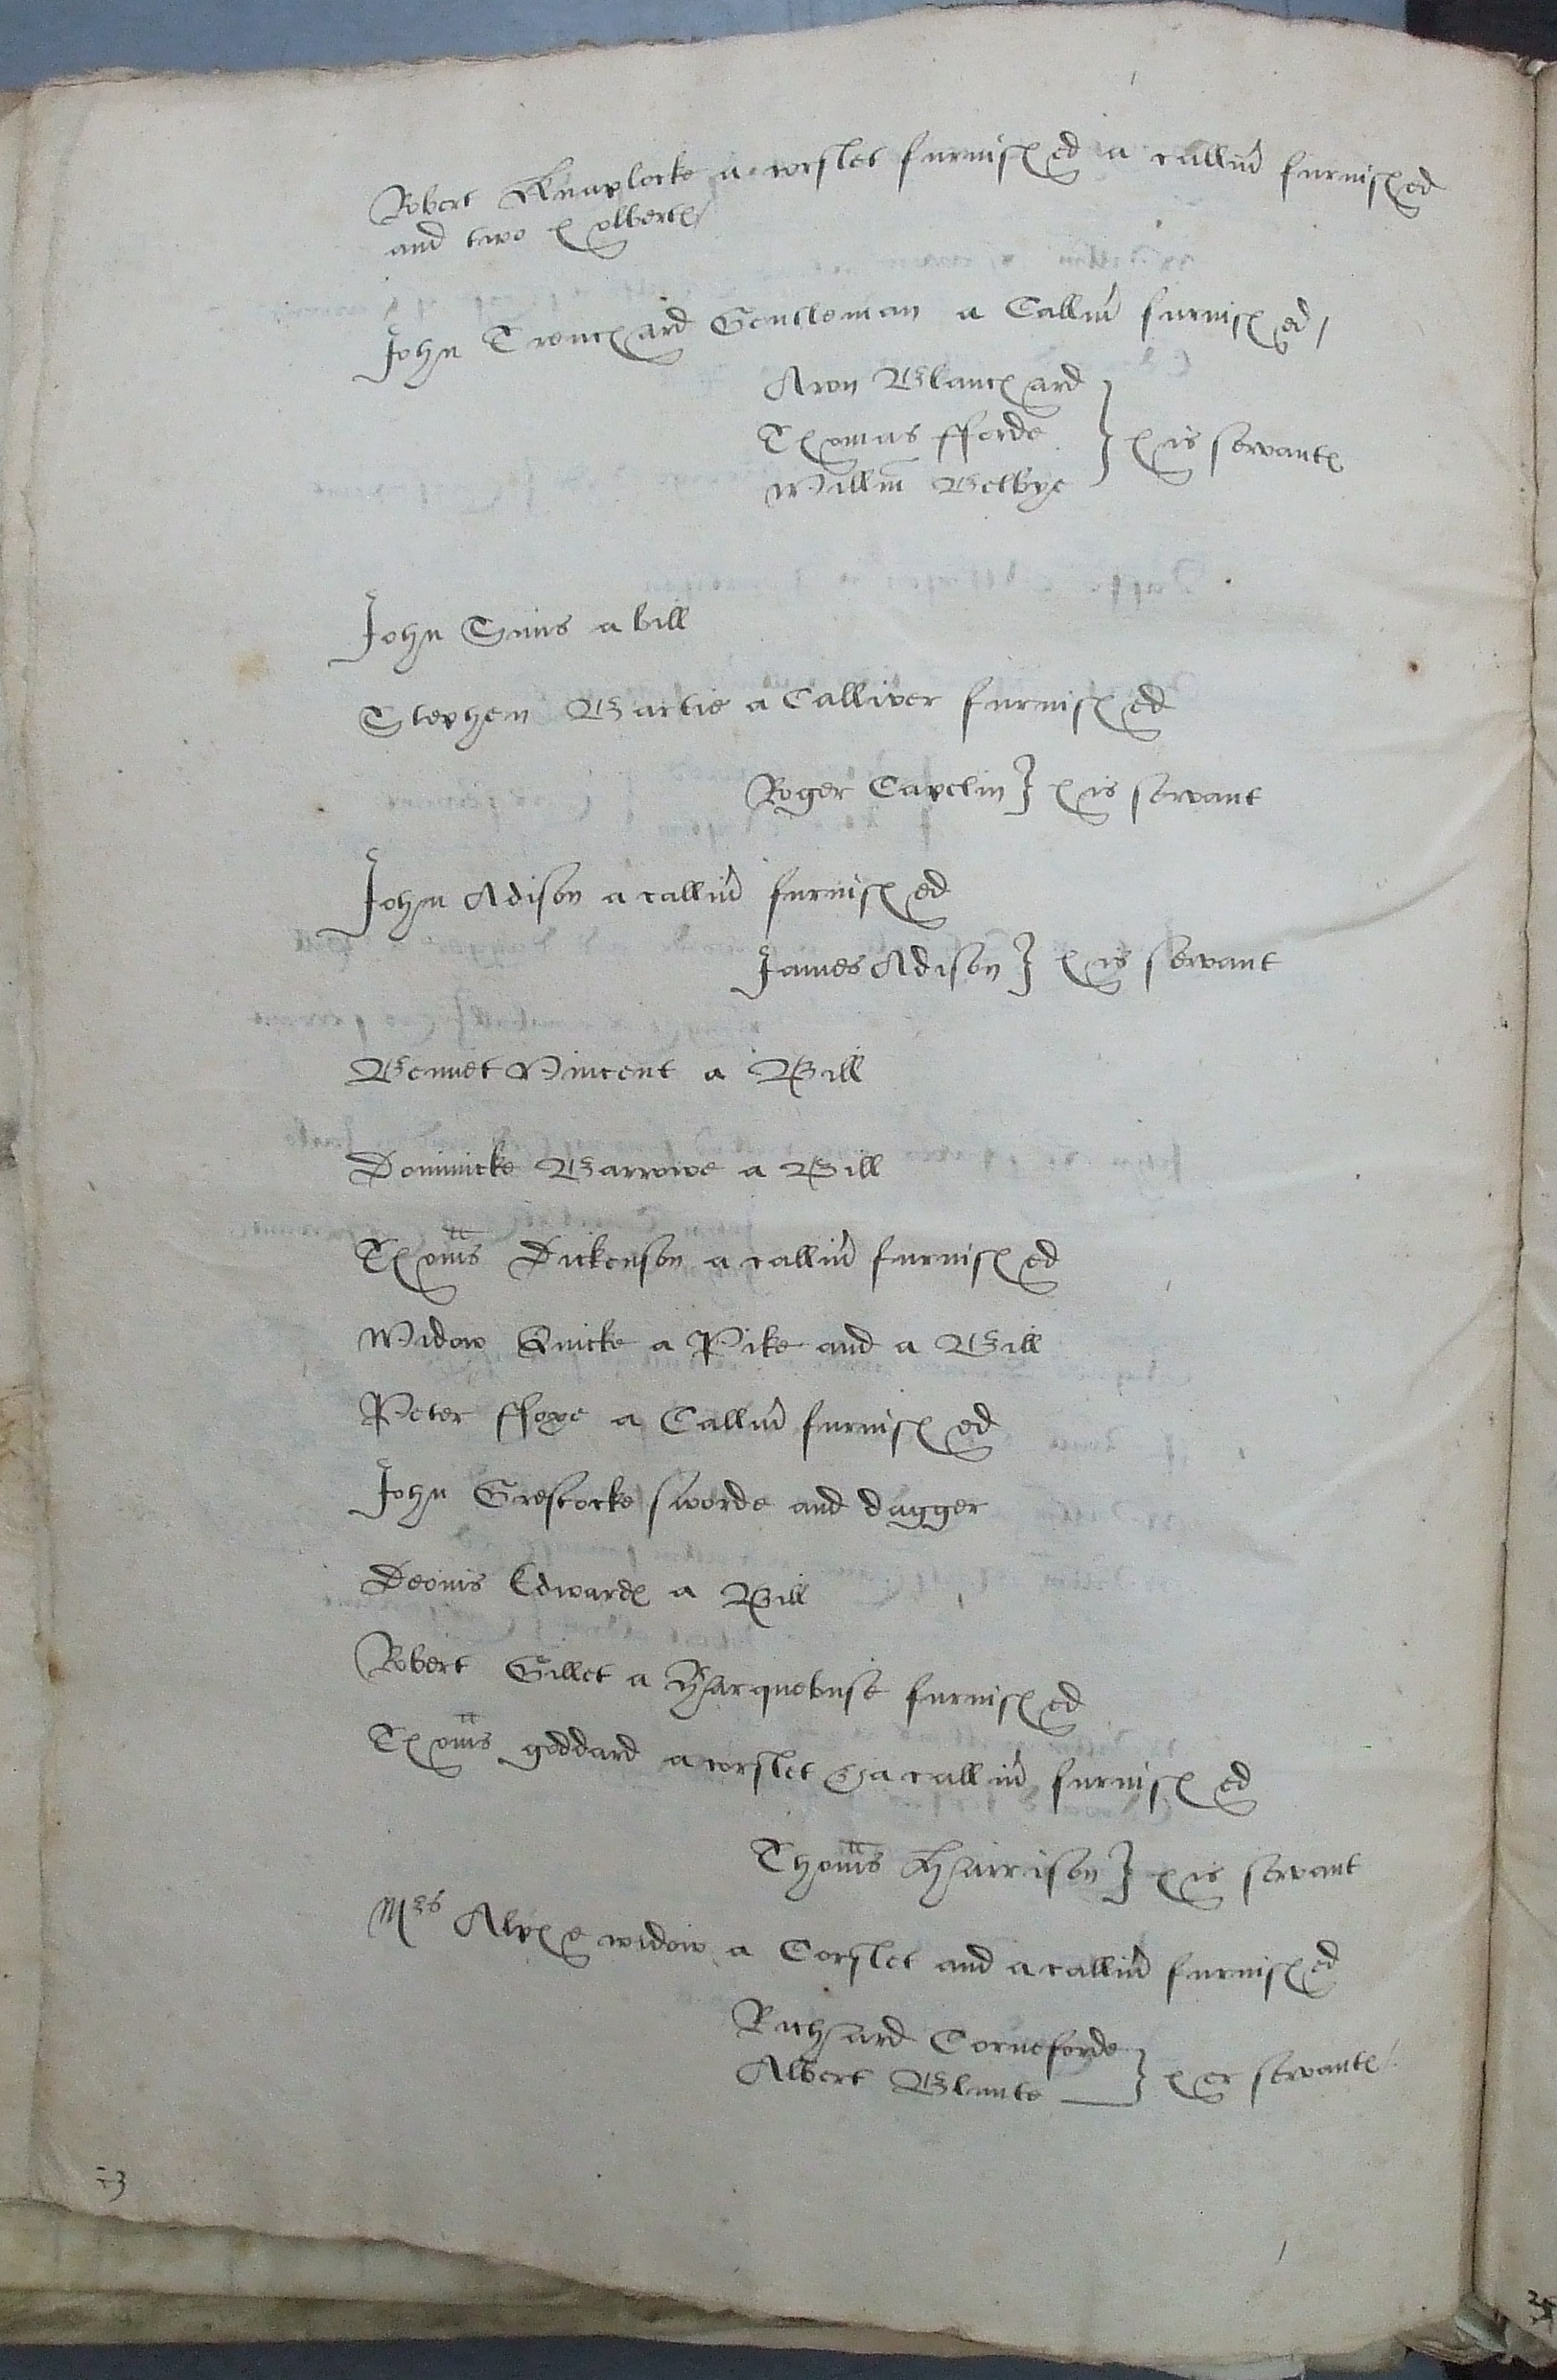 Robert Knaplocke a corslet furnished a calliu͛ furnished
and two holbertꝭ
John Trenchard Gentleman a Calliu͛ furnished /
Aron Blanchard
Thomas fforde } his servantꝭ
Willm̄ Betbye
John Sims a bill
Stephen Bartie a Calliver furnished
Roger Caplin } his servant
John Adison a calliu͛ furnished
James Adison } his servant
Bennet Vincent a Bill
Dominicke Barrowe a Bill
Thom̄s Dickenson a calliu͛ furnished
Widow Quicke a Pike and a Bill
Peter ffoxe a Calliu͛ furnished
John Grestocke sworde and dagger
Deonis Edwardꝭ a Bill
Robert Gillet a Harquebuse furnished
Thom̄s goddard a corslet & a calliu͛ furnished
Thom̄s Harrison } his servant
Mʳˢ widow a Corslet and a calliu͛ furnished
Richard Corneforde
Albert Blunte } her servantꝭ